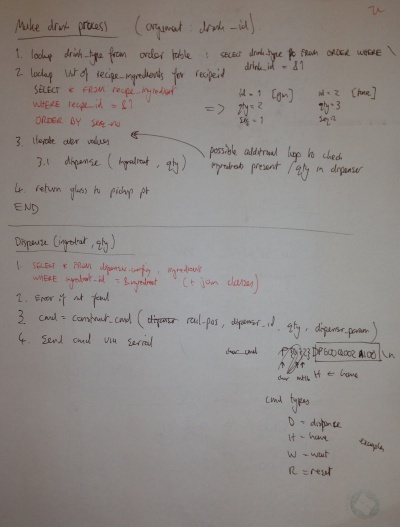 Make drink process (argument: drink_id)
1. lookup drink_type from order table : SELECT drink_type FROM ORDER WHERE \
drink_id = $1
2. lookup list of recipe_ingredients for recipe id
SELECT * FROM recipe_ingredient
WHERE recipe_id = $1
ORDER BY seq_no
=>
id = 1 [gin] id = 2 [tonic]
qty = 2 qty = 3
seq = 1 seq = 2
3. Iterate over values
3.1 dispense (ingredient, qty)
possible additional loop to check
ingredients present / qty in dispenser
4. return glass to pickup pt
END
Dispense (ingredient, qty)
1. SELECT * FROM dispenser_config, ingredients
WHERE ingredient_id = $ingredient (+ join clauses)
2. Error if not found
3. cmd = construct_cmd (dispenser rail_pos, dispenser_id, qty, dispenser_param)
4. Send cmd via serial
H = home
cmd types
D = dispense
H = home
W = wait
R = reset
examples